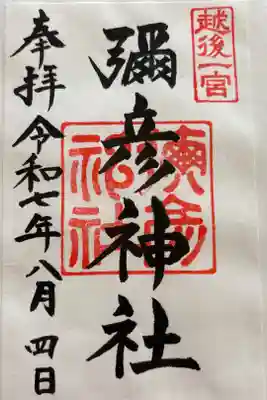 越後一宮
彌彦神社
奉拝 令和七年八月四日